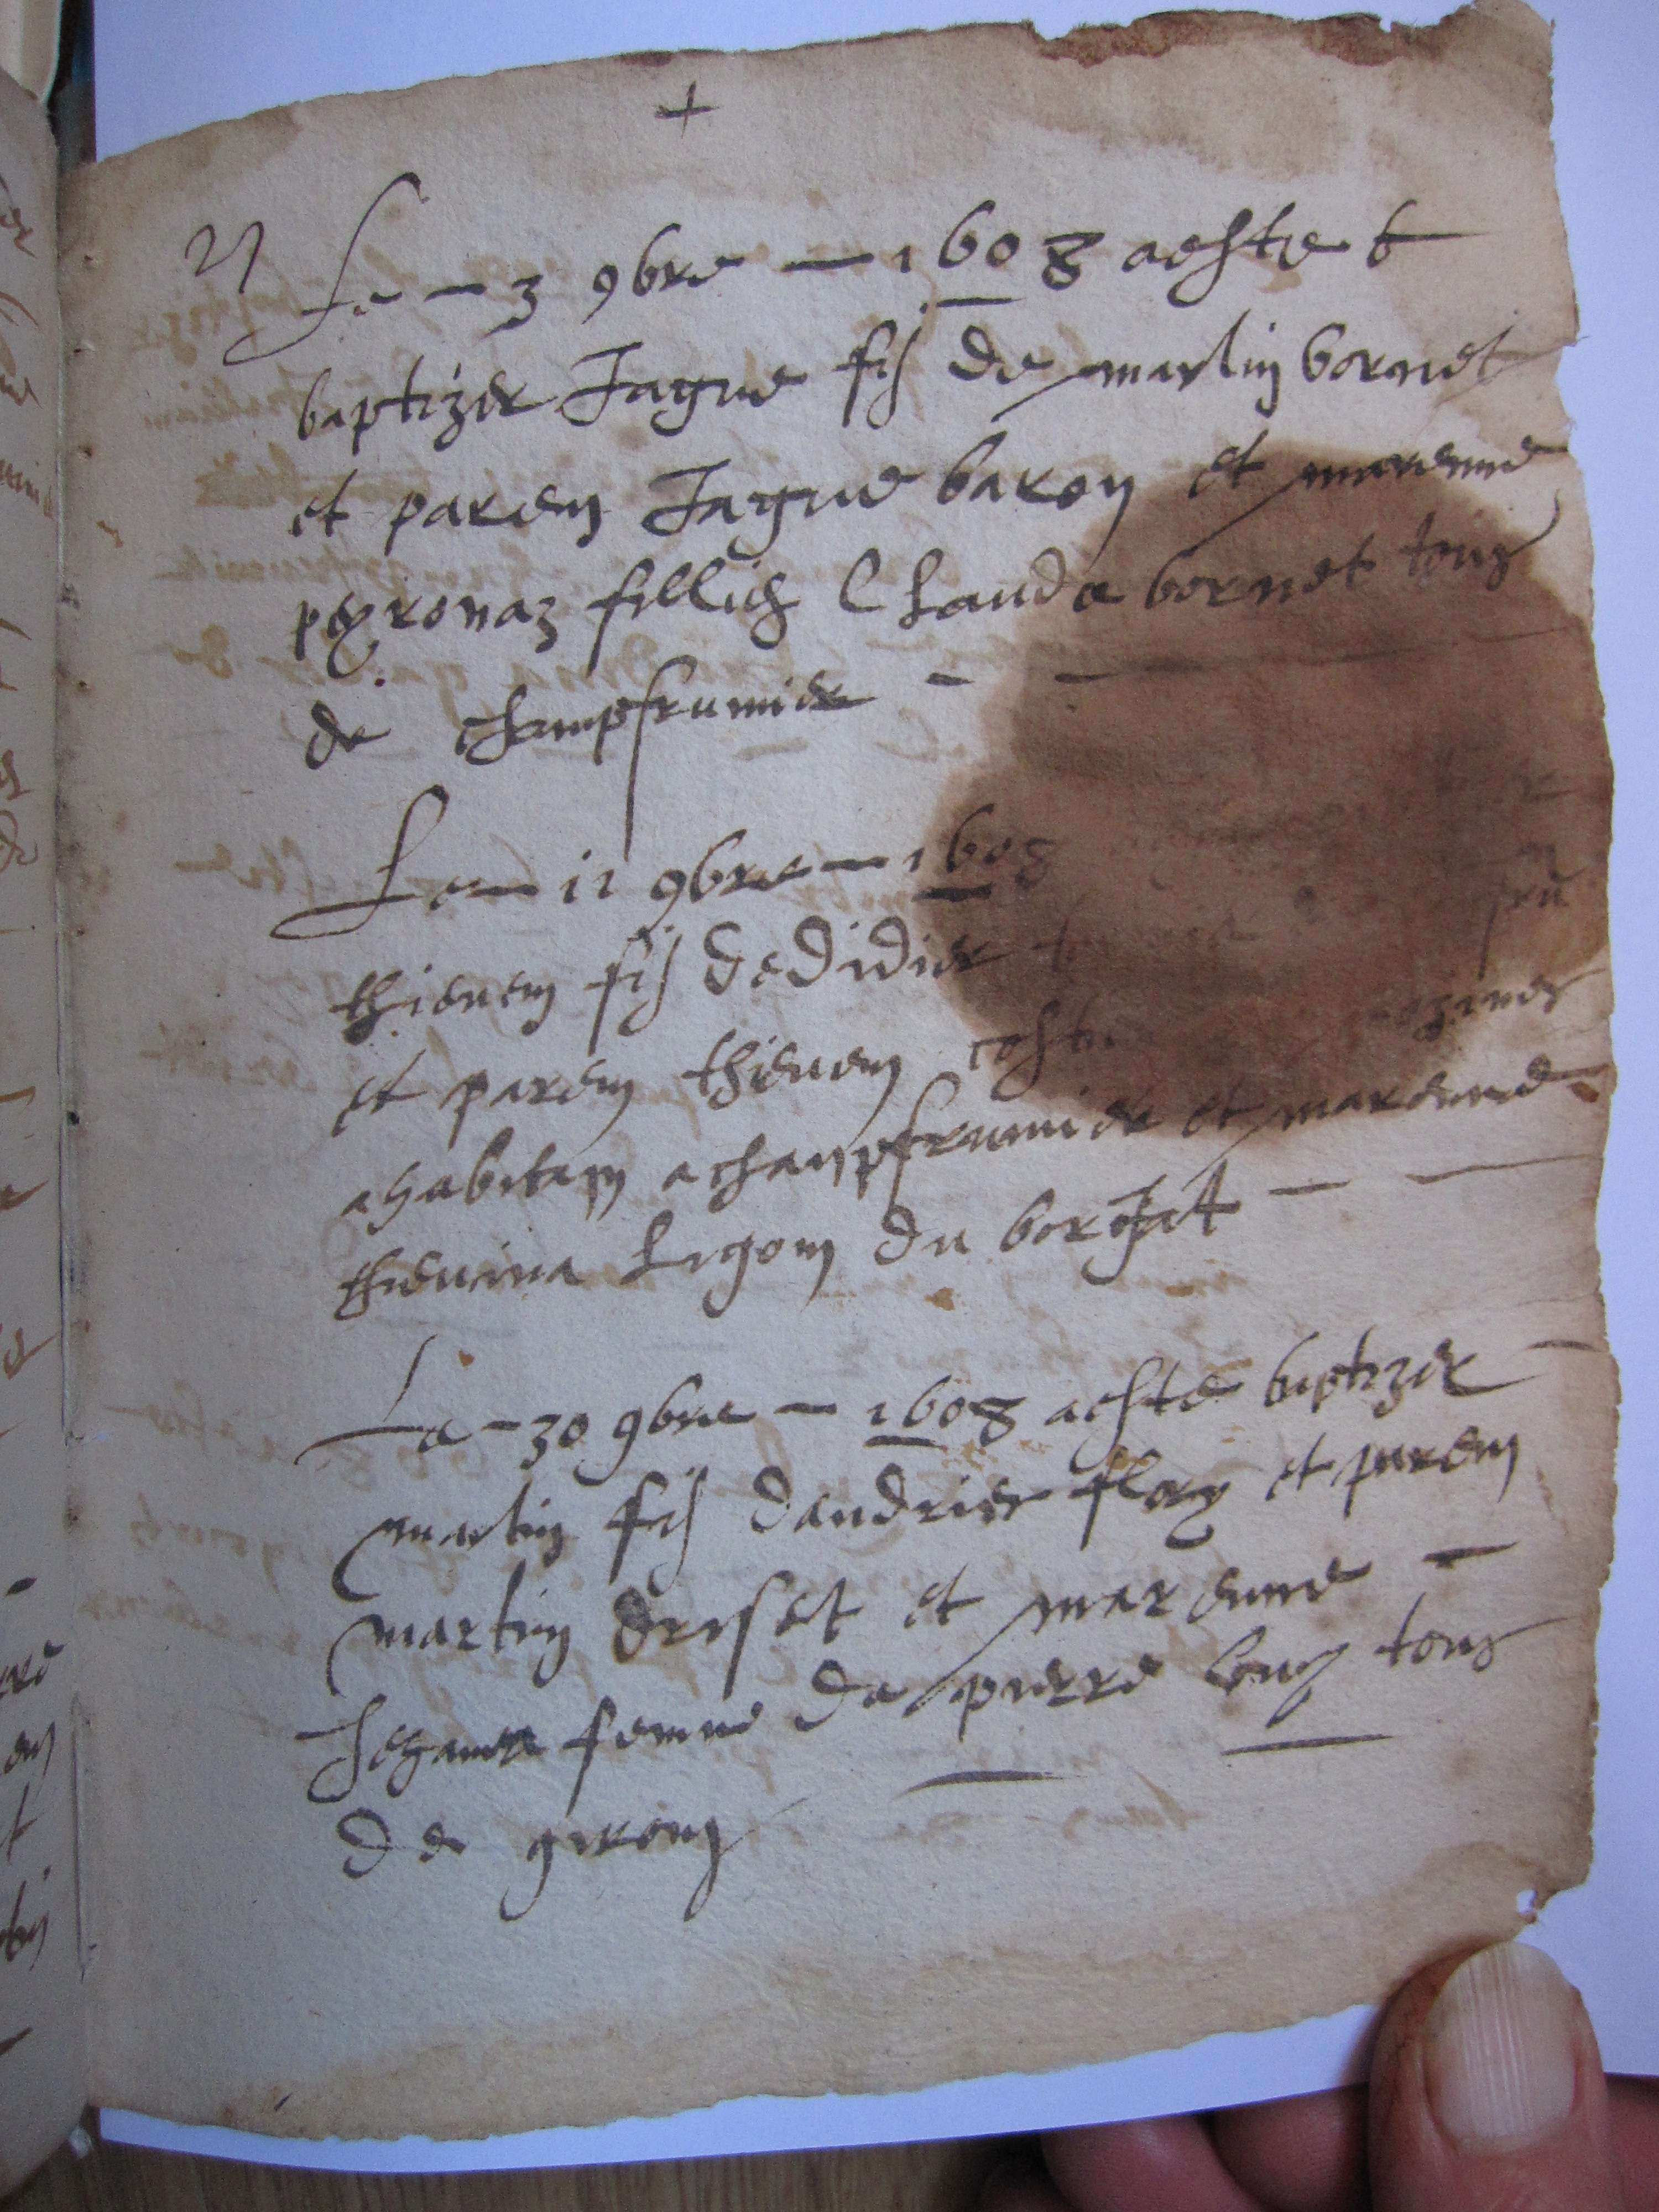 +
Le — 3 9bre — 1608 aeste t
baptizer Jaque fis de martin bornet
et paren Jaque baron et marenne
peyronaz fillie Clauda bornet tous
de champfrumier —
Le — 11 9bre — 1608
thieven fis de didier
et paren thieven
ahabitan a champfrumier et marenne
thievena ligon du borget —
Le — 30 9bre — 1608 aeste baptizer
martin fis dandrier flory et paren
martin driset et marenne —
femme de pierre long tous
de giron